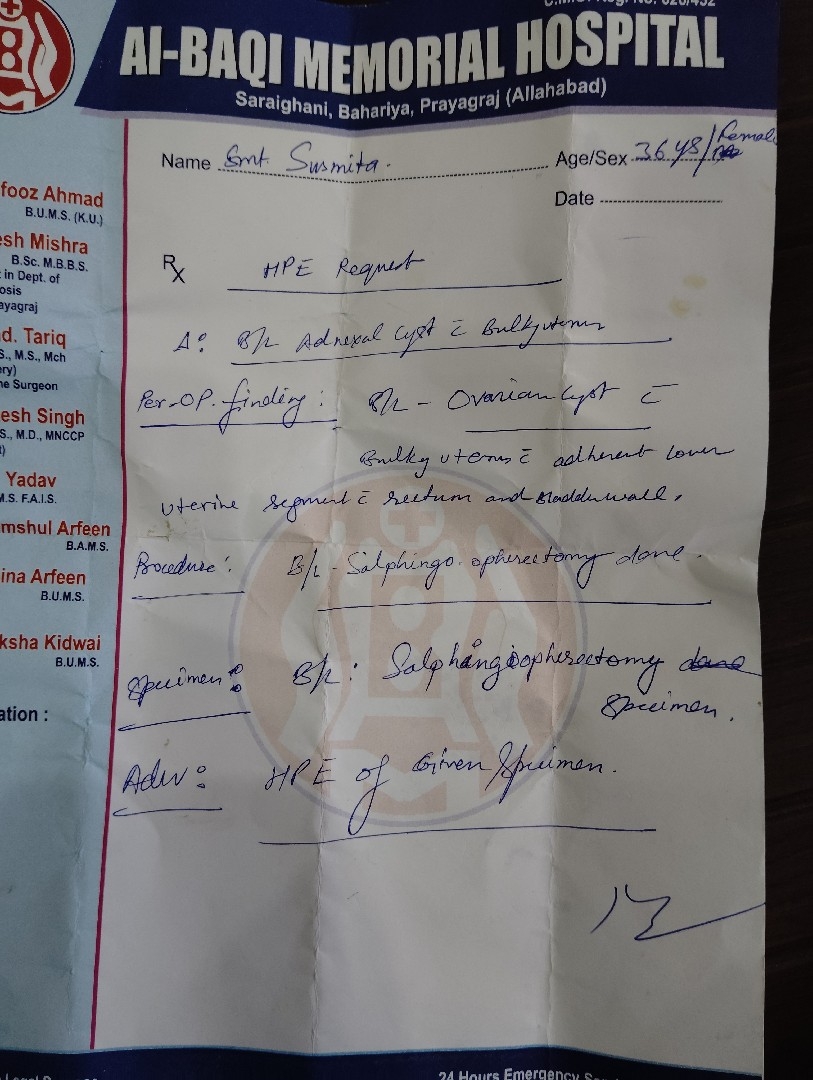 AI-BAQI MEMORIAL HOSPITAL
Saraighani, Bahariya, Prayagraj (Allahabad)
Name Smt. Susmita. Age/Sex 36 YS/Female
Date
fooz Ahmad
B.U.M.S. (K.U.)
esh Mishra
B.Sc. M.B.B.S.
in Dept. of
osis
ayagraj
d. Tariq
S., M.S., Mch
ery)
ne Surgeon
esh Singh
S., M.D., MNCCP
Yadav
M.S. F.A.I.S.
mshul Arfeen
B.A.M.S.
ina Arfeen
B.U.M.S.
ksha Kidwai
B.U.M.S.
ation :
Rx HPE Request
Δ: B/L Adnexal Cyst c̄ Bulky uterus
Per-OP. finding : B/L - Ovarian Cyst c̄
Bulky uterus c̄ adherent lower
uterine segment c̄ rectum and Bladder wall.
Procedure : B/L - Salphingo-opherectomy done.
Specimen : B/L : Salphingoopherectomy done
Specimen.
Adv : HPE of Given Specimen.
24 Hours Emergency